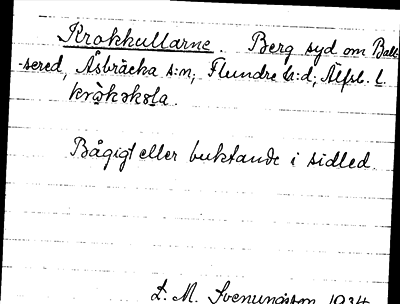 Krokkullarne. Berg syd om Ball-
sered, Åsbräcka s:n, Flundre h:d, Älfsb. l.
Bågigt eller buktande i sidled.
L. M. Svenungsson 1934